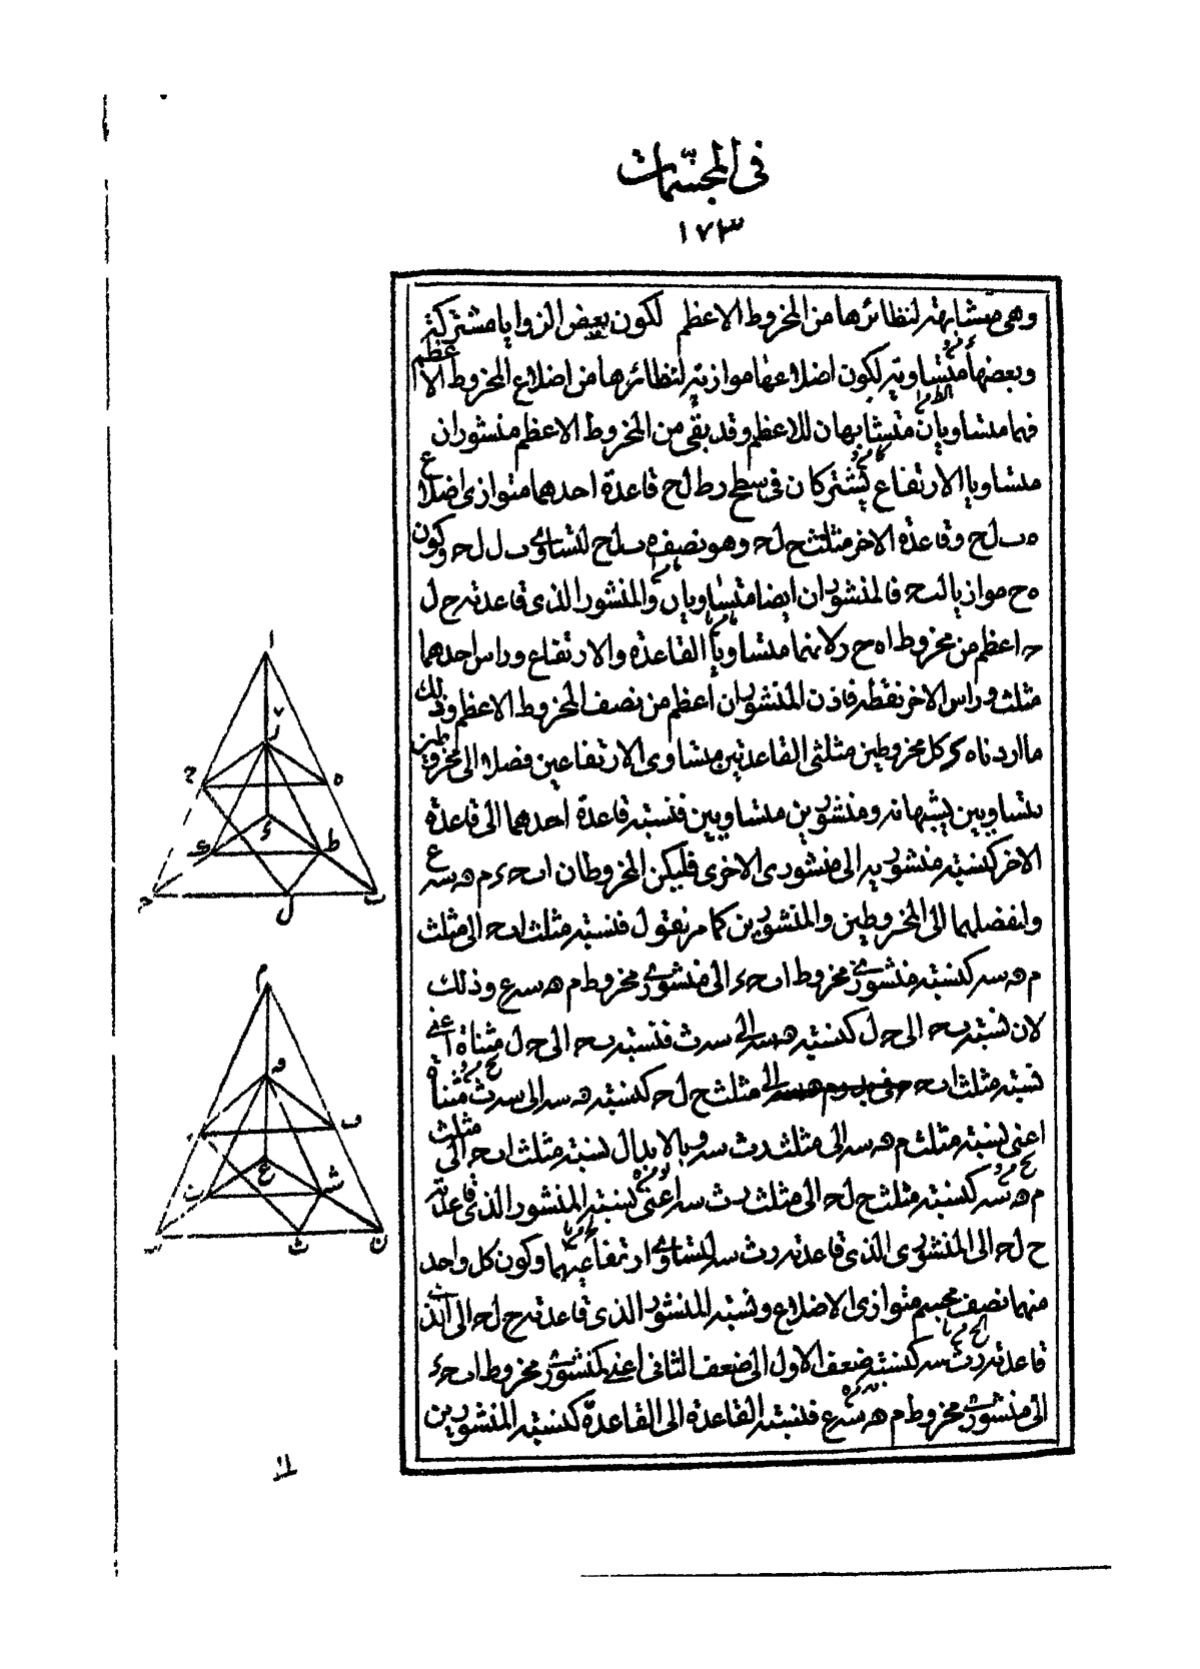 فى المجسّمات
١٧٣
وهى متشابهة لنظائرها من المخروط الاعظم لكون بعض الزوايا مشتركة
وبعضها متساوية لكون اضلاعها موازية لنظائرها من اضلاع المخروط الاعظم
فهما متساويان متشابهان للاعظم وقد بقى من المخروط الاعظم منشوران
متساويا الارتفاع يشتركان فى سطح رط لح قاعدة احدهما متوازى اضلاع
ه ب ل ح وقاعدة الاخر مثلث ح ل حـ وهو نصف ه ب ل ح لتساوى ب ل ل حـ وكون
ه ح موازيا لـ ب حـ فالمنشوران ايضا متساويان والمنشور الذى قاعدته ح ل
حـ اعظم من مخروط ا ه ح ر لانهما متساويا القاعدة والارتفاع وراس احدهما
مثلث وراس الاخر نقطة فاذن المنشوران اعظم من نصف المخروط الاعظم وذلك
ما اردناه كل مخروطين مثلثى القاعدتين متساوى الارتفاعين فصلا الى مخروطين
متساويين يشبهانه ومنشورين متساويين فنسبة قاعدة احدهما الى قاعدة
الاخر كنسبة منشوريه الى منشورى الاخرى فليكن المخروطان ا ب حـ ء م ه س ع
ولنفصلهما الى المخروطين والمنشورين كما مر نقول فنسبة مثلث ا ب حـ الى مثلث
م ه س كنسبة منشورى مخروط ا ب حـ ء الى منشورى مخروط م ه س ع وذلك
لان نسبة ب حـ الى حـ ل كنسبة ه س الى س ث فنسبة ب حـ الى حـ ل مثناة اعنى
نسبة مثلث ا ب حـ الى مثلث ح ل حـ كنسبة ه س الى س ث مثناة
اعنى نسبة مثلث م ه س الى مثلث ر ث س وبالابدال نسبة مثلث ا ب حـ الى مثلث
م ه س كنسبة مثلث ح ل حـ الى مثلث ر ث س اعنى نسبة المنشور الذى قاعدته
ح ل حـ الى المنشور الذى قاعدته ر ث س لتساوى ارتفاعيهما وكون كل واحد
منهما نصف مجسم متوازى الاضلاع ونسبة المنشور الذى قاعدته ح ل حـ الى الذى
قاعدته ر ث س كنسبة ضعف الاول الى ضعف الثانى اعنى كمنشورى مخروط ا ب حـ ء
الى منشورى مخروط م ه س ع فنسبة القاعدة الى القاعدة كنسبة المنشورين
ا
ر
ح
ه
ء
ك
ط
حـ
ل
ب
م
ف
ع
ش
ث
ن